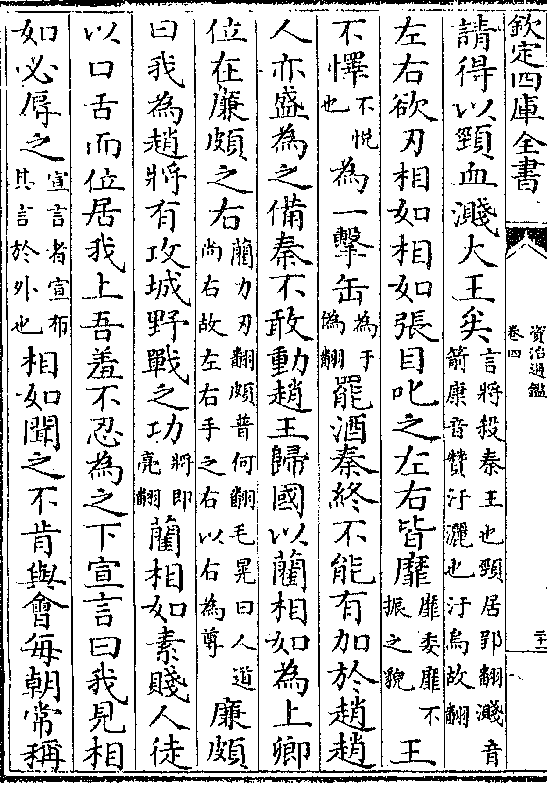 欽定四庫全書
資治通鑑
卷四
請得以頸血濺大王矣言將殺秦王也頸居郢翻濺音箭康音贊汙灑也汙烏故翻
左右欲刃相如相如張目叱之左右皆靡靡委靡不振之貌王
不懌不悅也為一擊缶為于偽翻罷酒秦終不能有加於趙趙
人亦盛為之備秦不敢動趙王歸國以藺相如為上卿
位在廉頗之右藺力刃翻頗普何翻毛晃曰人道尚右故左右手之右以右為尊廉頗
曰我為趙將有攻城野戰之功將即亮翻藺相如素賤人徒
以口舌而位居我上吾羞不忍為之下宣言曰我見相
如必辱之宣言者宣布其言於外也相如聞之不肯與會每朝常稱